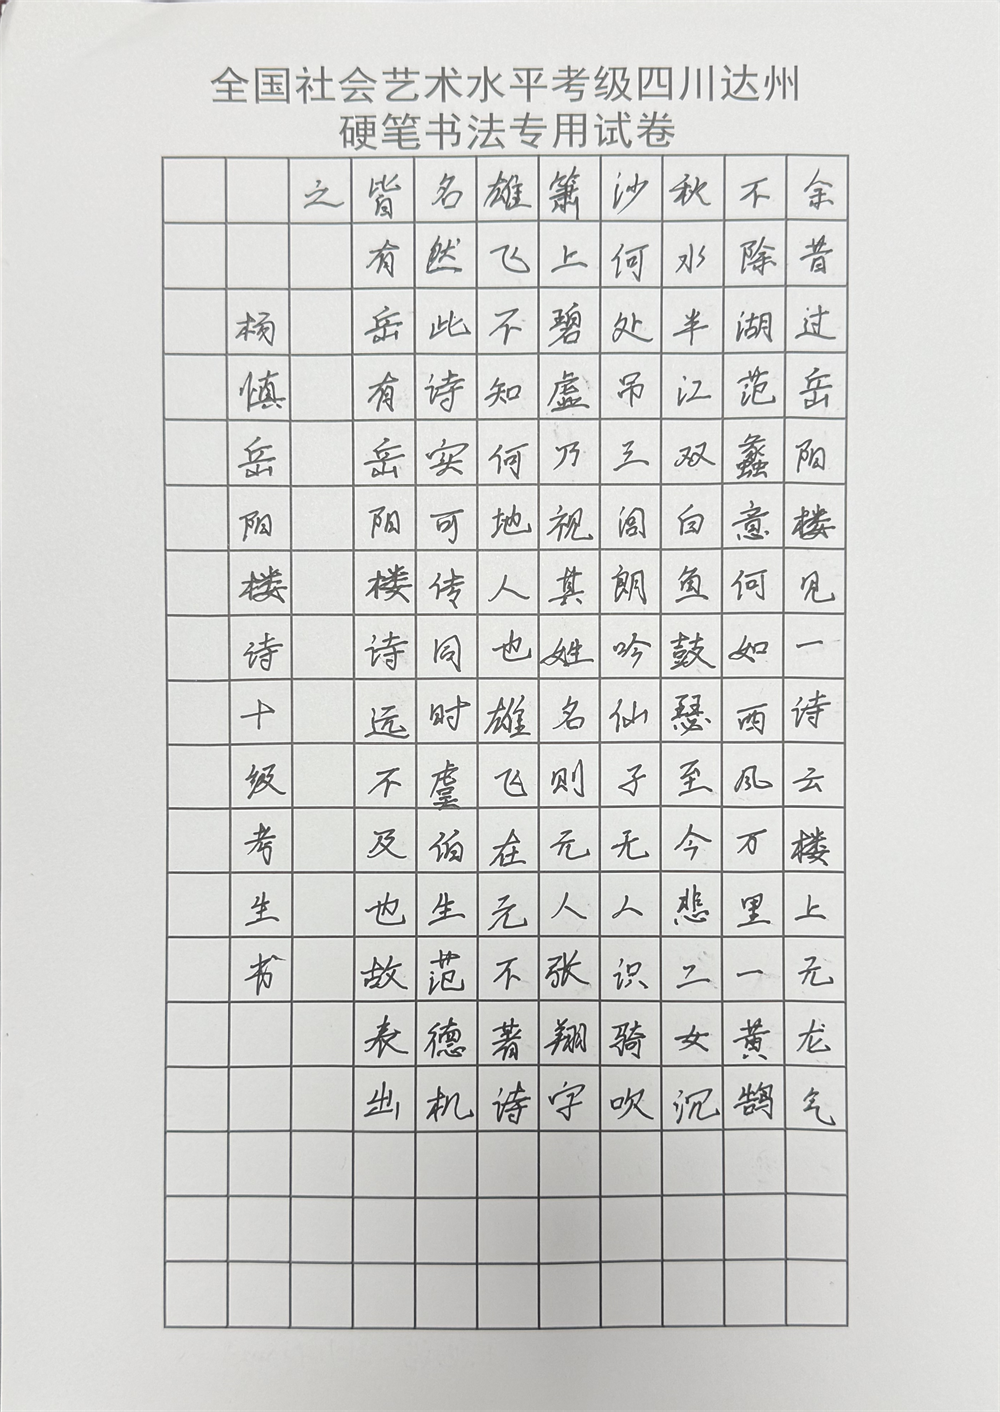 全国社会艺术水平考级四川达州
硬笔书法专用试卷
余昔过岳阳楼见一诗云楼上元龙气
不除湖范蠡意何如西风万里一黄鹄
秋水半江双白鱼鼓瑟至今悲二女沉
沙何处吊三闾朗吟仙子无人识骑吹
箫上碧虚乃视其姓名则元人张翔字
雄飞不知何地人也雄飞在元不著诗
名然此诗实可传同时虞伯生范德机
皆有岳有岳阳楼诗远不及也故表出
之
杨慎岳阳楼诗十级考生书